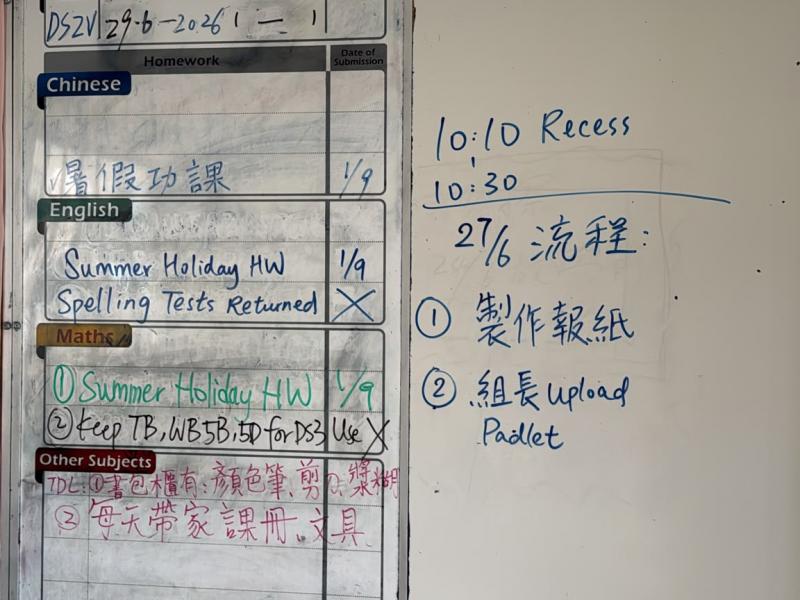 DS2V 29-6-2026 1 — 1
Homework Date of Submission
Chinese
暑假功課 1/9
English
Summer Holiday HW 1/9
Spelling Tests Returned X
Maths
① Summer Holiday HW 1/9
② Keep TB, WB 5B, 5D for DS3 Use X
Other Subjects
TDL: ① 書包櫃有: 顏色筆、剪刀、漿糊
② 每天帶家課冊、文具
10:10 Recess
10:30
27/6 流程:
① 製作報紙
② 組長 upload
Padlet